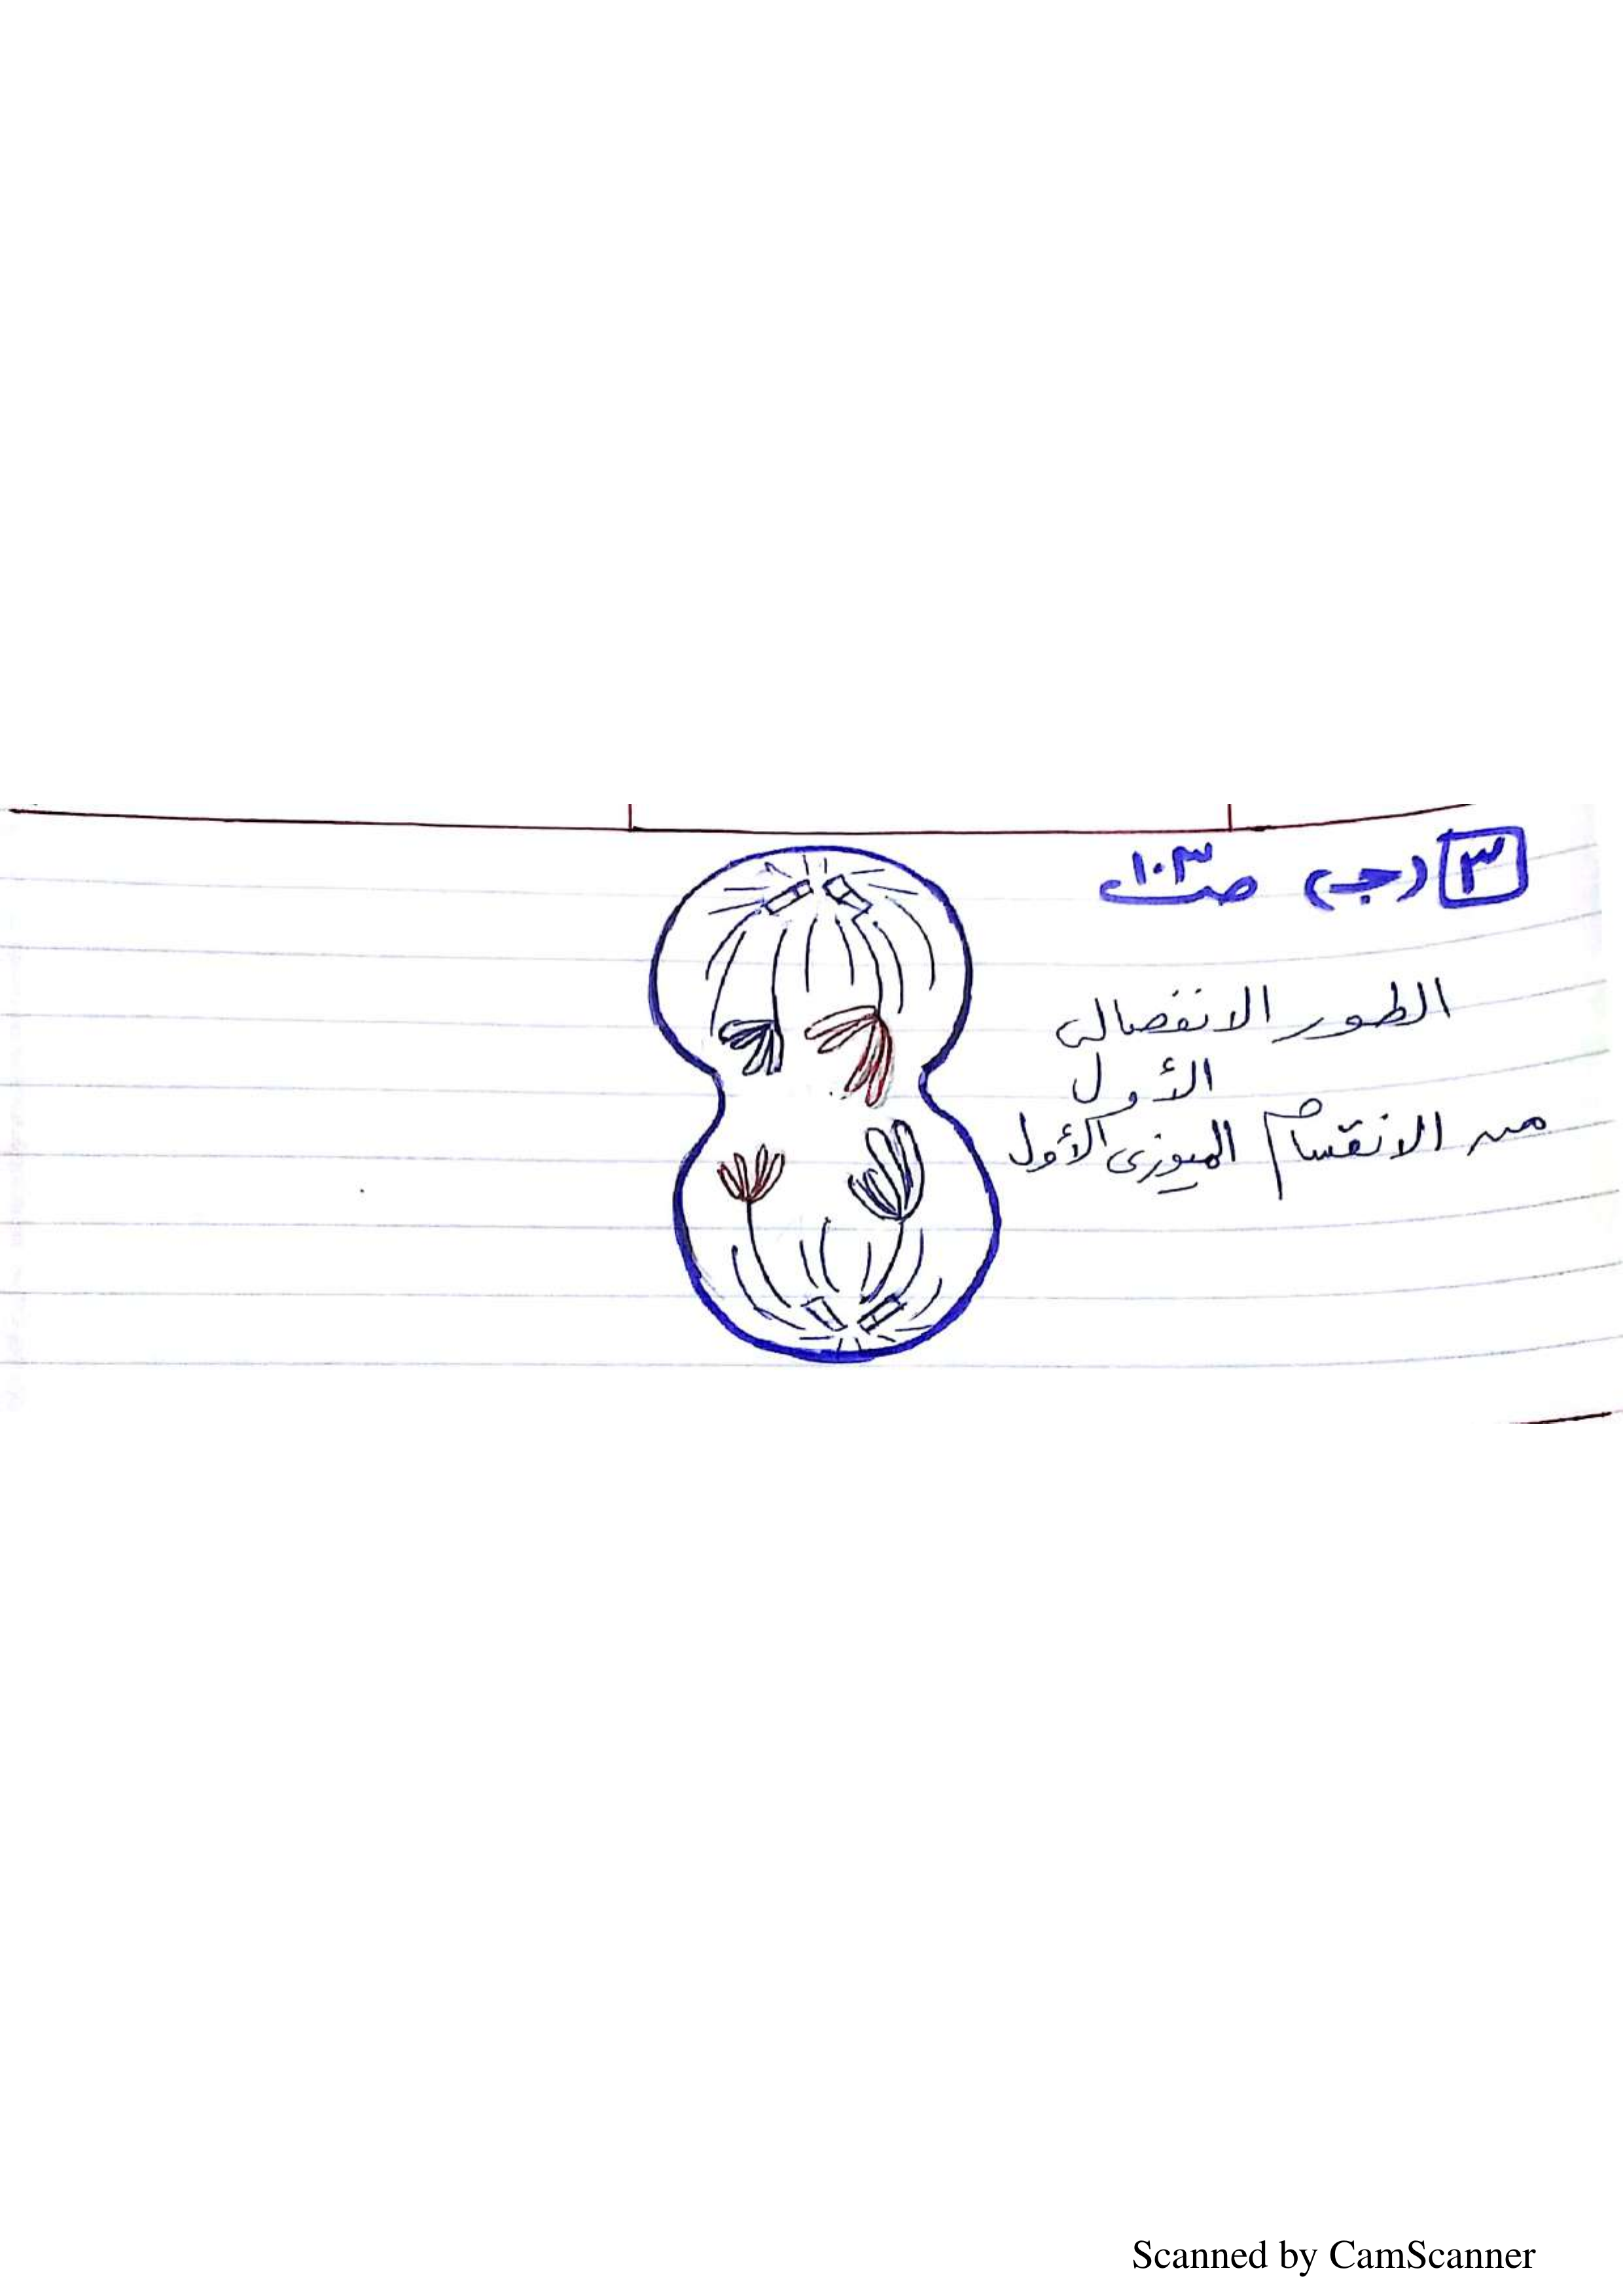 ٣ (جـ) صـ ١٠٣
الطور الانفصالى
الأول
من الانقسام الميوزى الأول
Scanned by CamScanner